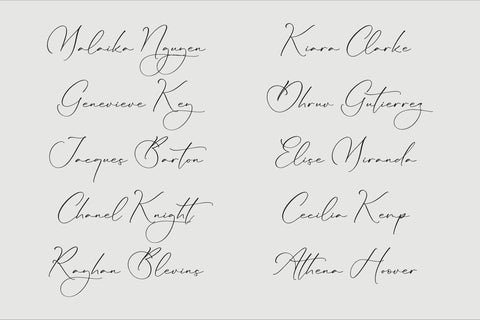 Malaika Nguyen
Kiara Clarke
Genevieve Key
Dhruv Gutierrez
Jacques Barton
Elise Miranda
Chanel Knight
Cecilia Kemp
Rayhan Blevins
Athena Hoover